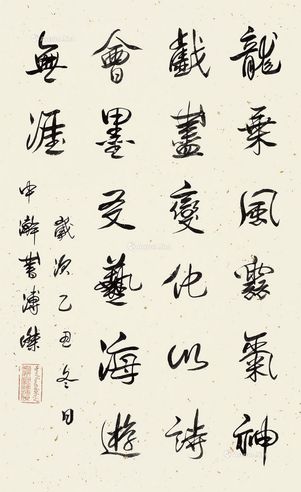 龍乘風氣神
戲盡變化以詩
會墨友藝海遊
無涯
歲次乙丑冬日
中澣書溥傑